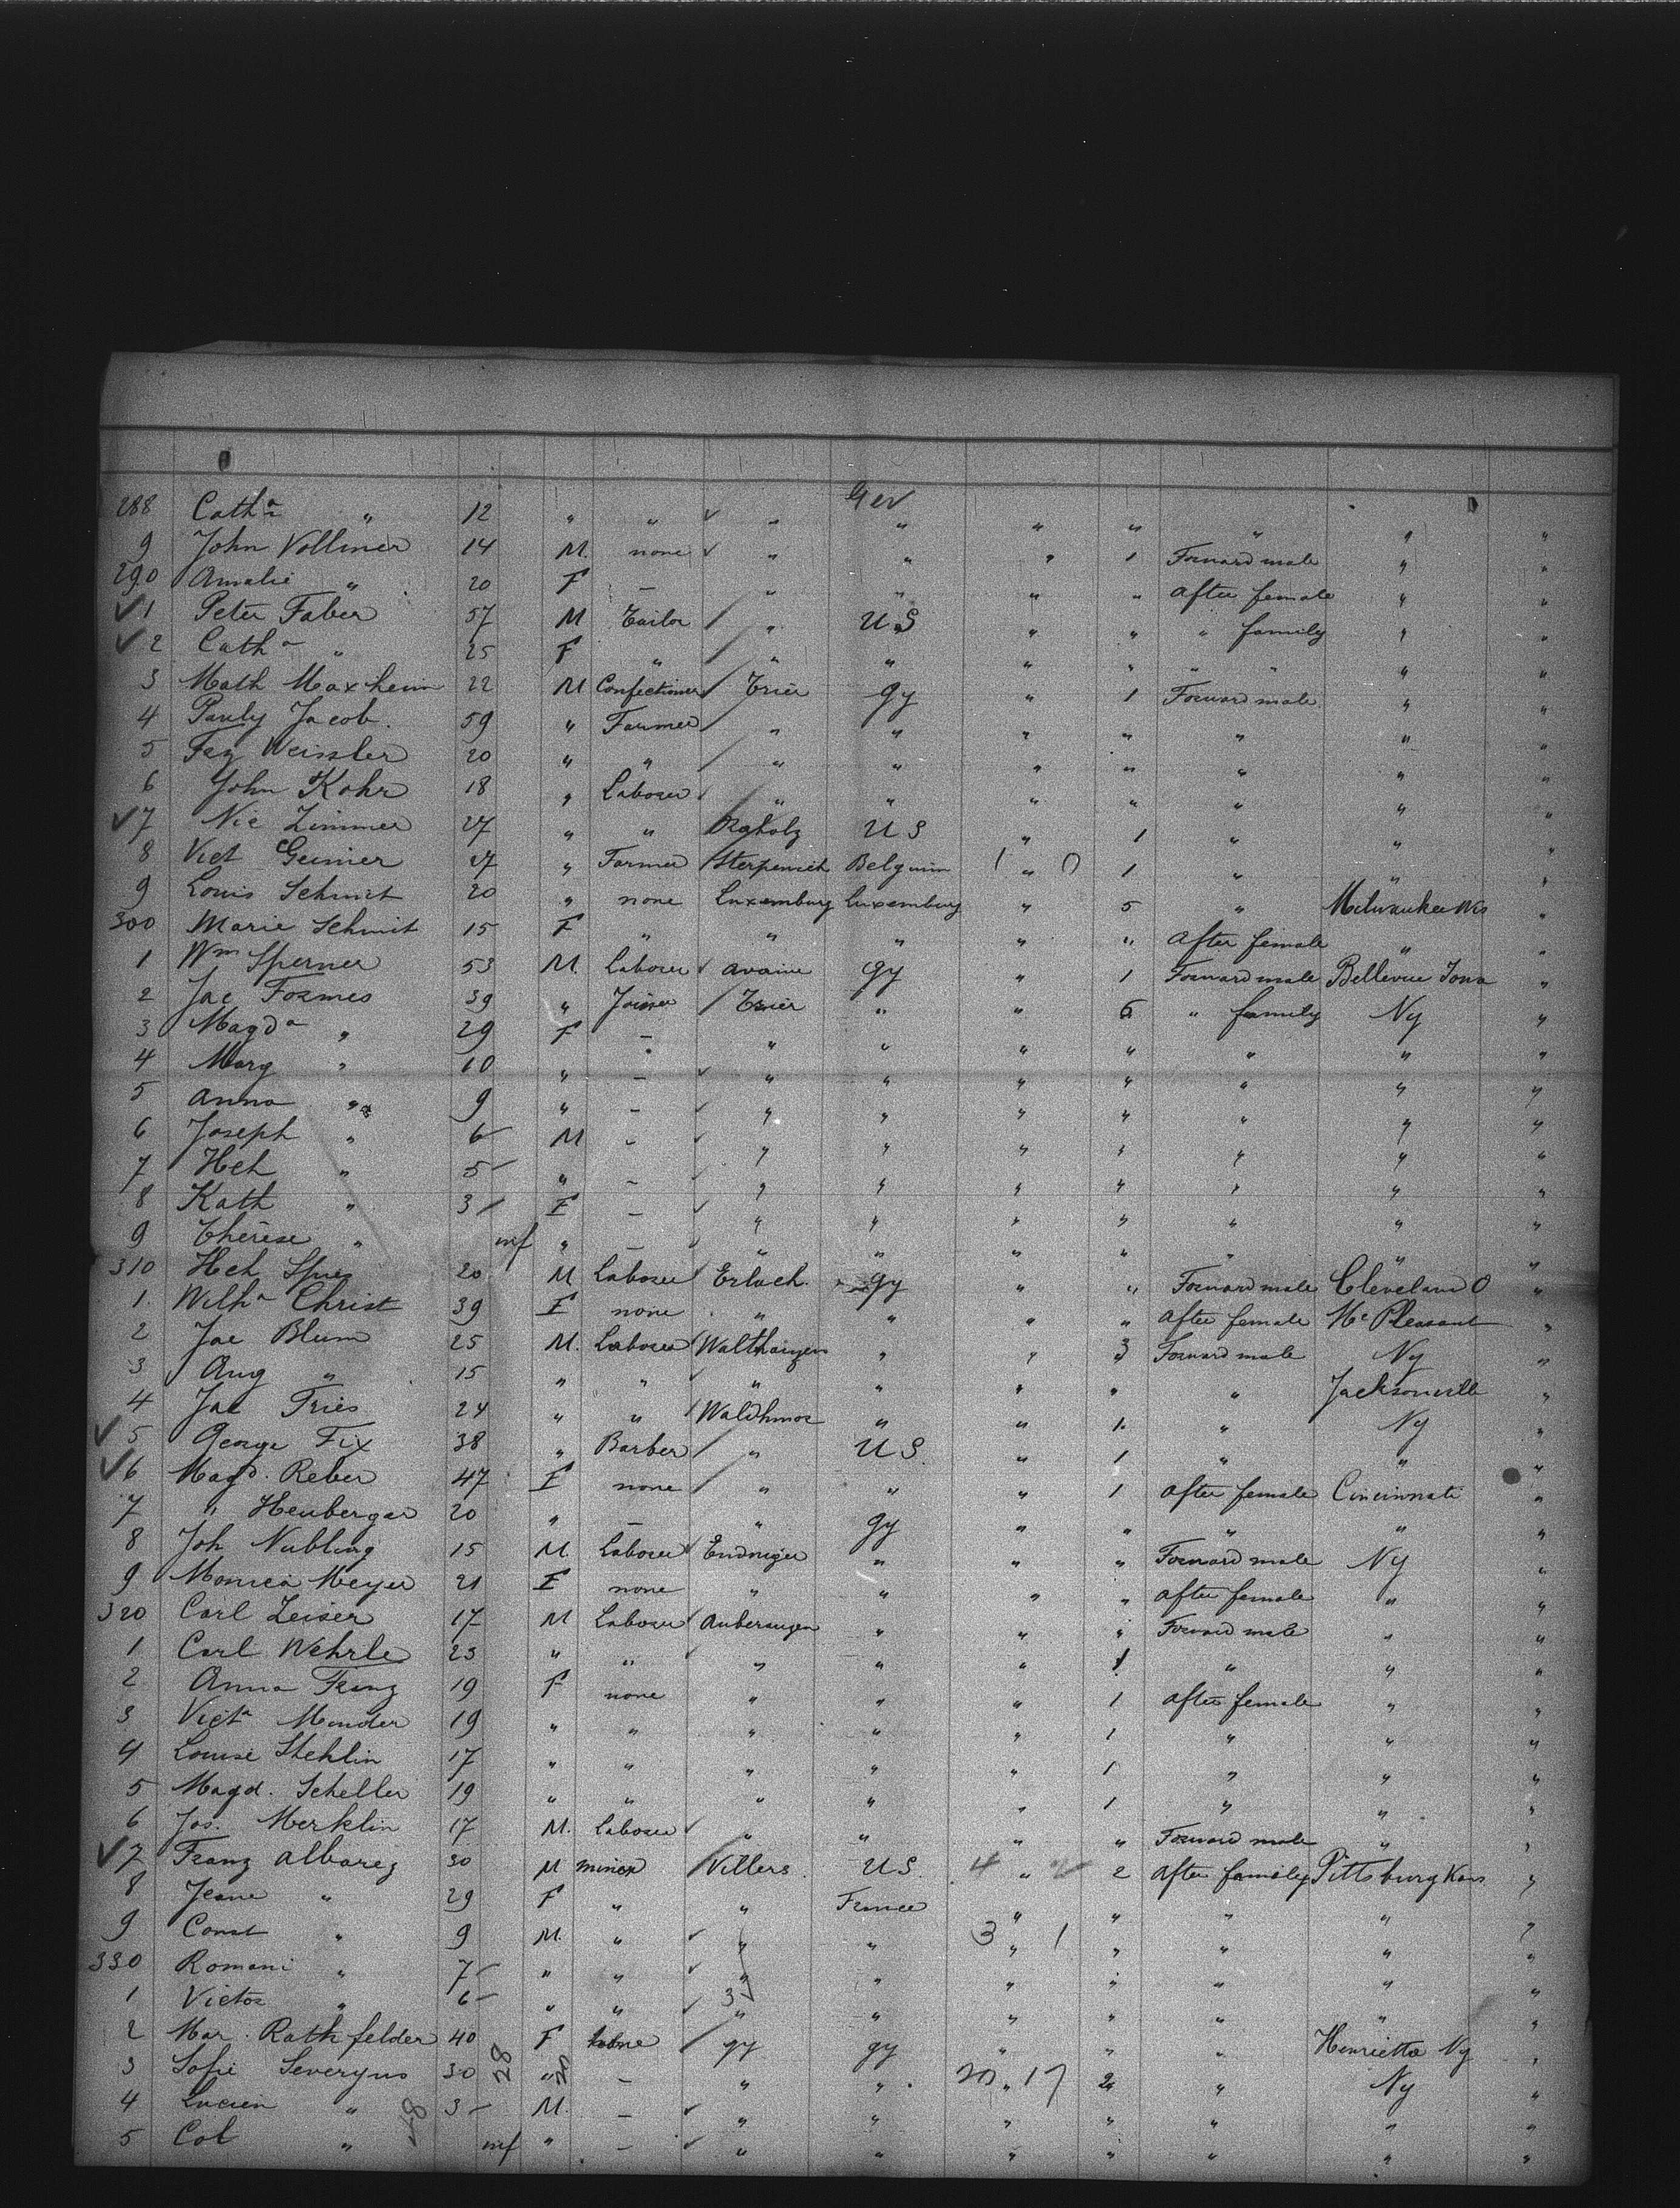 Ger
288 Catha " 12 " " ✓ " " " " " " "
9 John Vollmer 14 M. none ✓ " " " 1 Forward male " "
290 Amalie " 20 F – " " " " After female " "
✓ 1 Peter Faber 57 M Tailor / " U S " " " family " "
✓ 2 Catha " 25 F " / " " " " " " " "
3 Math Maxheim 22 M Confectioner / Trier Gy " 1 Forward male " "
4 Pauly Jacob. 59 " Farmer / " " " " " " "
5 Weissler 20 " " / " " " " " " "
6 John Kohr 18 " Laborer / " " " " " " "
✓ 7 Nic Zimmer 27 " " U S " 1 " " "
8 Vict 27 " Farmer / Belguim 1 " 0 1 " " "
9 Louis Schmit 20 " none Luxemburg Luxemburg " 5 " Milwaukee Wis "
300 Marie Schmit 15 F " " " " " After female " "
1 Wm Sperner 53 M. Laborer ✓ Gy " 1 Forward male Bellevue Iowa "
2 Jac Formes 39 " Joiner / Trier " " 6 " family Ny "
3 Magda " 29 F – " " " " " " "
4 Marg " 10 " – ✓ " " " " " " "
5 Anna " 9 " – ✓ " " " " " " "
6 Joseph " 6 – M – ✓ " " " " " " "
7 Hch " 5 – " – ✓ " " " " " " "
8 Kath " 3 / F – ✓ " " " " " " "
9 Thérèse " inf " – ✓ " " " " " " "
310 Hch Spies 20 M Laborer ✓ Erlach. Gy " " Forward male Cleveland O "
1. Wilha Christ 39 F none " " " " After female Mt Pleasant "
2 Jac Blum 25 M. Laborer ✓ " " 3 Forward male Ny "
3 Aug " 15 " " ✓ " " " " " Jacksonville "
4 Jac Fries 24 " " / " " 1. " Ny "
✓ 5 George Fix 38 " Barber / " U S. " 1 " " "
✓ 6 Magd. Reber 47 F none / " " " 1 After female Cincinnati "
7 " Heuberger 20 " – " Gy " " " " "
8 Joh Nubling 15 M. Laborer ✓ " " " Forward male Ny "
9 Monica Meyer 21 F none " " " " After female " "
320 Carl Zeiser 17 M Laborer ✓ " " " Forward male " "
1 Carl Wehrle 23 " " ✓ " " " 1 " " "
2 Anna Franz 19 F none " " " 1 After female " "
3 Victa Munder 19 " " " " " 1 " " "
4 Louise Stehlin 17 " " " " " 1 " " "
5 Magd. Scheller 19 " " " " " 1 " " "
6 Jos. Merklin 17 M. Laborer ✓ " " " " Forward male " "
✓ 7 Franz Albarez 30 M miner / Villers U S. 4 " 2 2 After family Pittsburg Kans "
8 Jeane " 29 F " " France " " " " "
9 Const " 9 M. " ✓ " " 3 " 1 " " " "
330 Romani " 7 – " " ✓ " " " " " " "
1 Victor " 6 – " " ✓ 3 " " " " " " "
2 Mar. Rathfelder 40 F none / Gy Gy " " " Henrietta Ny "
3 Sofie Severyns 30 28 " 20 – " " 20 " 17 2 " Ny "
4 Lucien " 3 – M. – ✓ " " " " " " "
48
5 Col " inf " – ✓ " " " " " " "